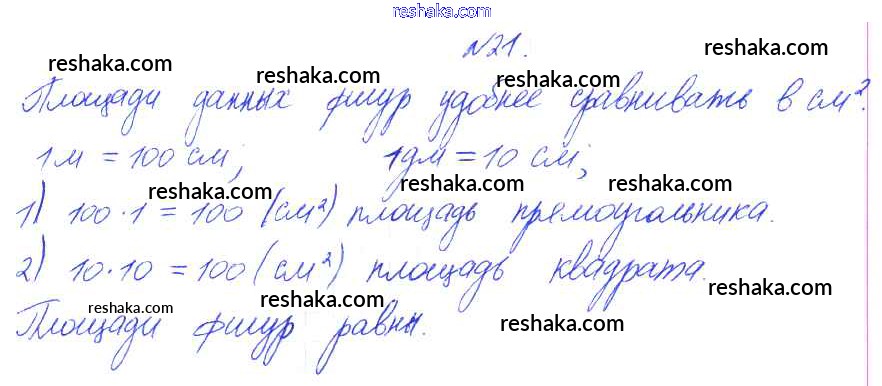 reshaka.com
№21.
reshaka.com reshaka.com reshaka.com
Площади данных фигур удобнее сравнивать в см².
1 м = 100 см; 1 дм = 10 см;
reshaka.com reshaka.com reshaka.com
1) 100·1 = 100 (см²) площадь прямоугольника.
2) 10·10 = 100 (см²) площадь квадрата.
reshaka.com reshaka.com reshaka.com reshaka.com
Площади фигур равны.